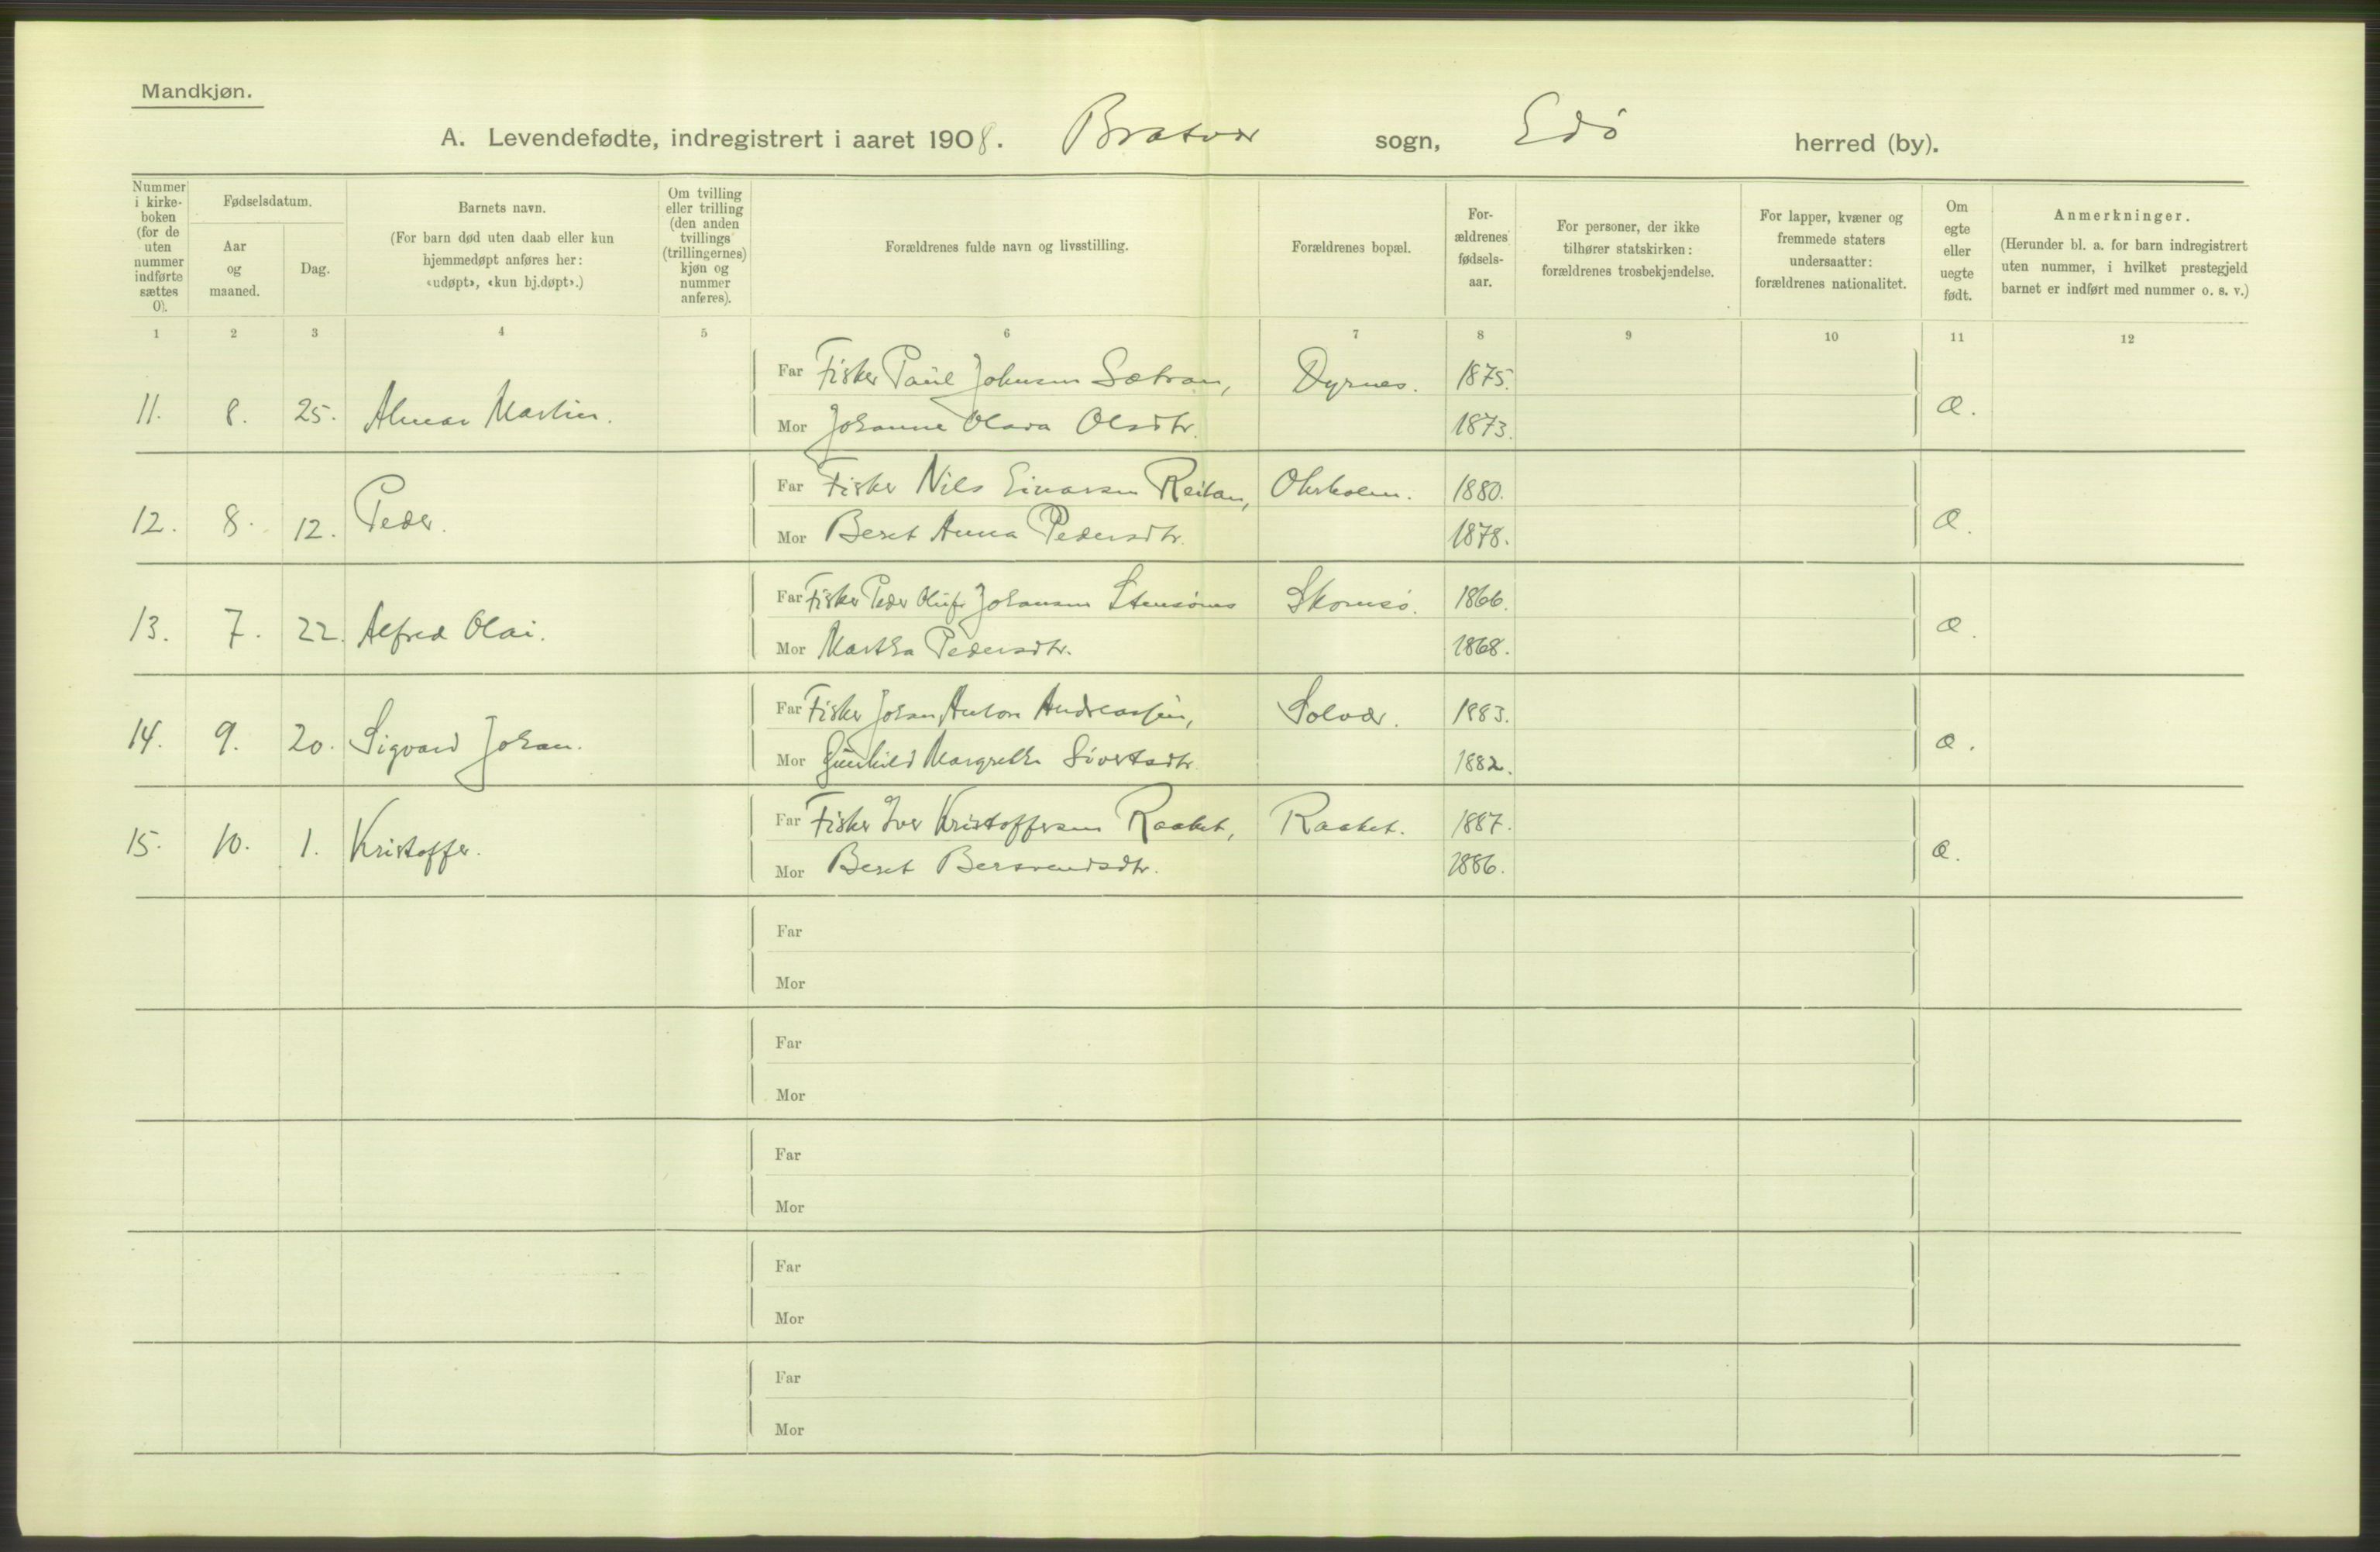 Mandkjøn.
A. Levendefødte, indregistrert i aaret 1908. Bratvær sogn, Edö herred (by).
Nummer i kirke-boken (for de uten nummer indførte sættes 0).
Fødselsdatum.
Aar og maaned.
Dag.
Barnets navn.
(For barn død uten daab eller kun hjemmedøpt anføres her: «udøpt», «kun hj.døpt».)
Om tvilling eller trilling (den anden tvillings (trillingernes) kjøn og nummer anføres).
Forældrenes fulde navn og livsstilling.
Forældrenes bopæl.
For-ældrenes fødsels-aar.
For personer, der ikke tilhører statskirken: forældrenes trosbekjendelse.
For lapper, kvæner og fremmede staters undersaatter: forældrenes nationalitet.
Om egte eller uegte født.
Anmerkninger.
(Herunder bl. a. for barn indregistrert uten nummer, i hvilket prestegjeld barnet er indført med nummer o. s. v.)
1 2 3 4 5 6 7 8 9 10 11 12
Far Fisker Paul Johnsen Sætran, Dyrnes. 1875.
11. 8. 25. Almar Martin. Æ.
Mor Johanne Olava Olsdtr. 1873.
Far Fisker Nils Einarsen Reitan, 1880.
12. 8. 12. Peder. Æ.
Mor Beret Anna Pedersdtr. 1878.
Far Fisker Peder Oluf Johansen Skomsö. 1866.
13. 7. 22. Alfred Olai. Æ.
Mor Martha Pedersdtr. 1868.
Far Fisker Johan Anton Andreassen, Solvær. 1883.
14. 9. 20. Sigvard Johan. Æ.
Mor Gunhild Margrethe Sivertsdtr. 1882.
Far Fisker Iver Kristoffersen Raaket, Raaket. 1887.
15. 10. 1. Kristoffer. Æ.
Mor Beret Bersvendsdtr. 1886.
Far
Mor
Far
Mor
Far
Mor
Far
Mor
Far
Mor